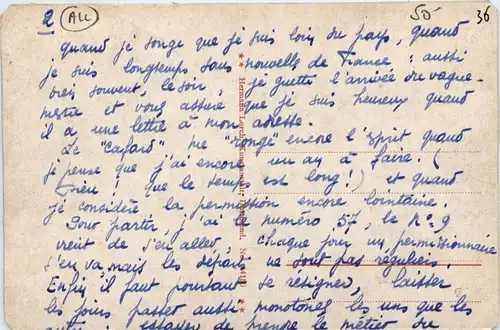 2 (ALL) 50 36
quand je songe que je suis loin du pays, quand
je suis longtemps sans nouvelle de France : aussi
très souvent, le soir, je guette l'arrivée du vague-
mestre et vous assure que je suis heureux quand
il a une lettre à mon adresse.
Le "cafard" me "ronge" encore l'esprit quand
je pense que j'ai encore un an à faire! (
Dieu! que le temps est long!) et quand
je considère la permission encore lointaine.
Pour partir, j'ai le numéro 57, le n° 9
vient de s'en aller, chaque jour un permissionnaire
s'en va, mais les départs ne sont pas réguliers.
Enfin il faut pourtant se résigner, laisser
les jours passer aussi monotones les uns que les
autres : essayer de prendre le métier de
Hermann Lorch, Kunstanstalt, Dortmund